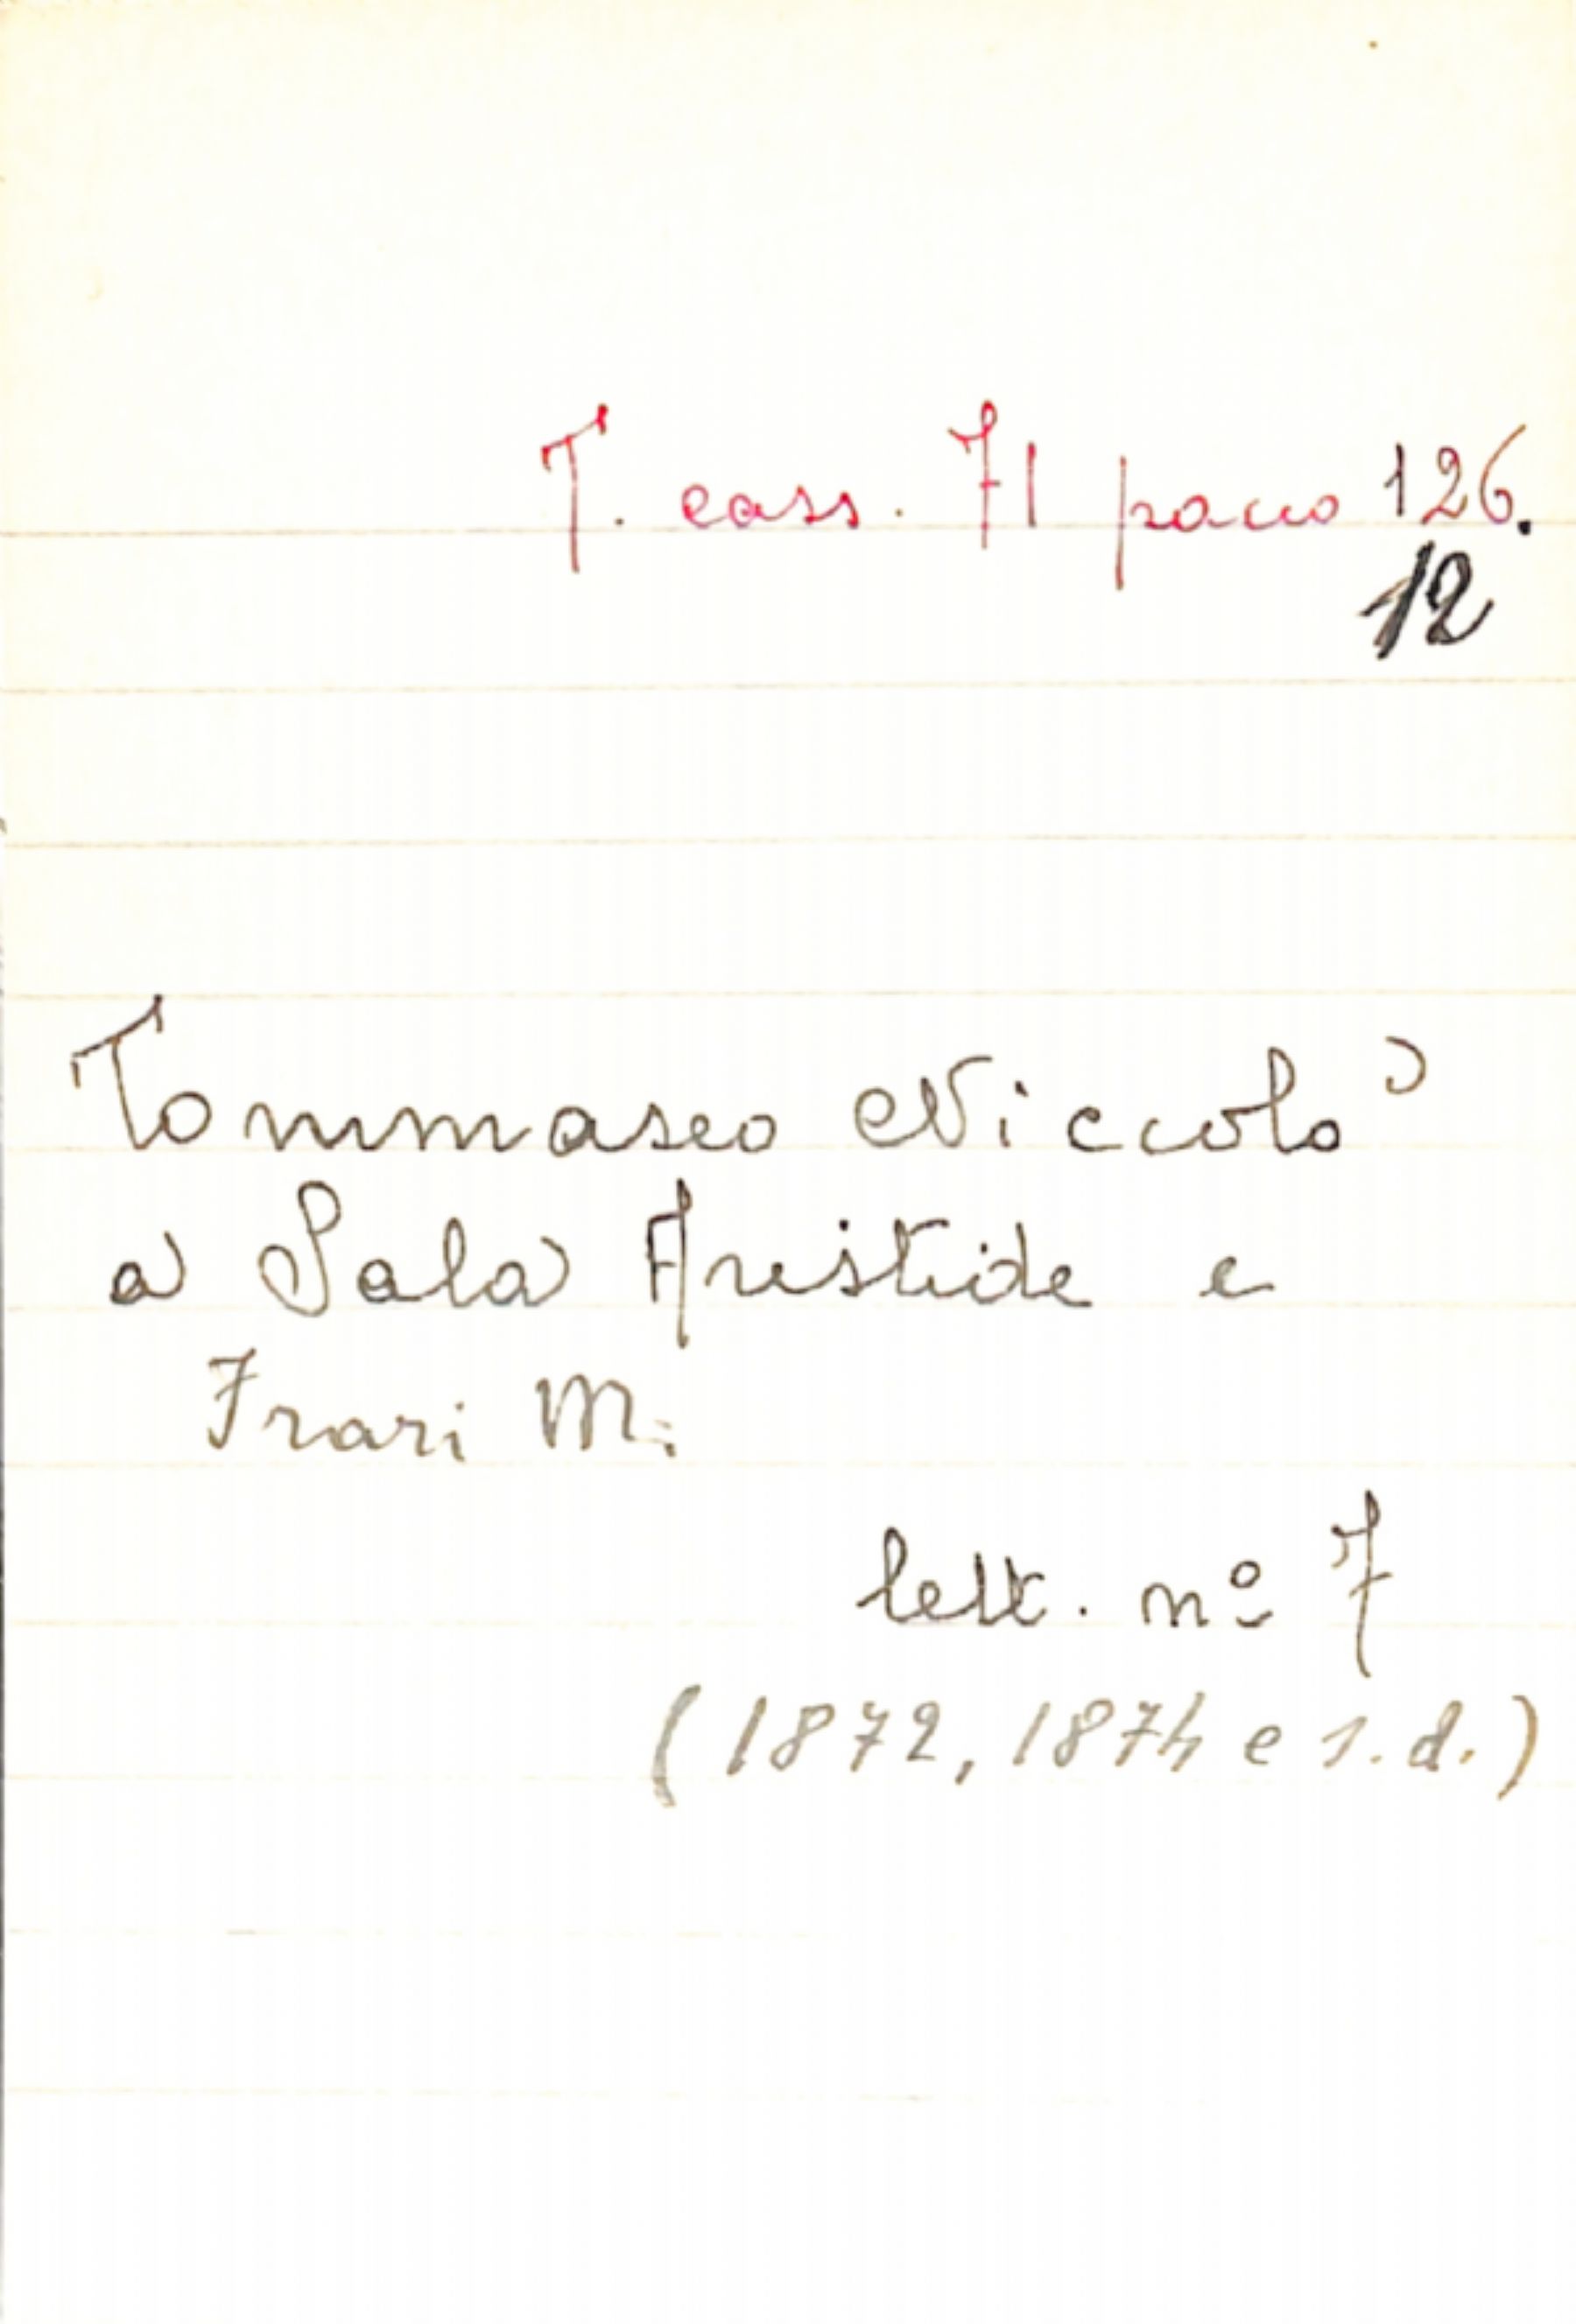 T. cass. 71 pacco 126.
12
Tommaseo Niccolò
a Sala Aristide e
Frari M.
lett. nº 7
(1872, 1874 e s.d.)